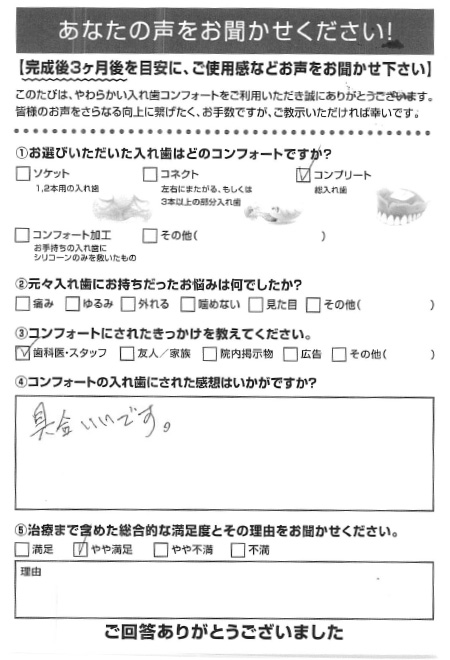 あなたの声をお聞かせください!
【完成後3ヶ月後を目安に、ご使用感などお声をお聞かせ下さい】
このたびは、やわらかい入れ歯コンフォートをご利用いただき誠にありがとうございます。
皆様のお声をさらなる向上に繋げたく、お手数ですが、ご教示いただければ幸いです。
①お選びいただいた入れ歯はどのコンフォートですか?
□ソケット □コネクト ☑コンプリート
1,2本用の入れ歯 左右にまたがる、もしくは 総入れ歯
3本以上の部分入れ歯
□コンフォート加工 □その他( )
お手持ちの入れ歯に
シリコーンのみを敷いたもの
②元々入れ歯にお持ちだったお悩みは何でしたか?
□痛み □ゆるみ □外れる □噛めない □見た目 □その他( )
③コンフォートにされたきっかけを教えてください。
☑歯科医・スタッフ □友人／家族 □院内掲示物 □広告 □その他( )
④コンフォートの入れ歯にされた感想はいかがですか?
具合いいです。
⑤治療まで含めた総合的な満足度とその理由をお聞かせください。
□満足 ☑やや満足 □やや不満 □不満
理由
ご回答ありがとうございました